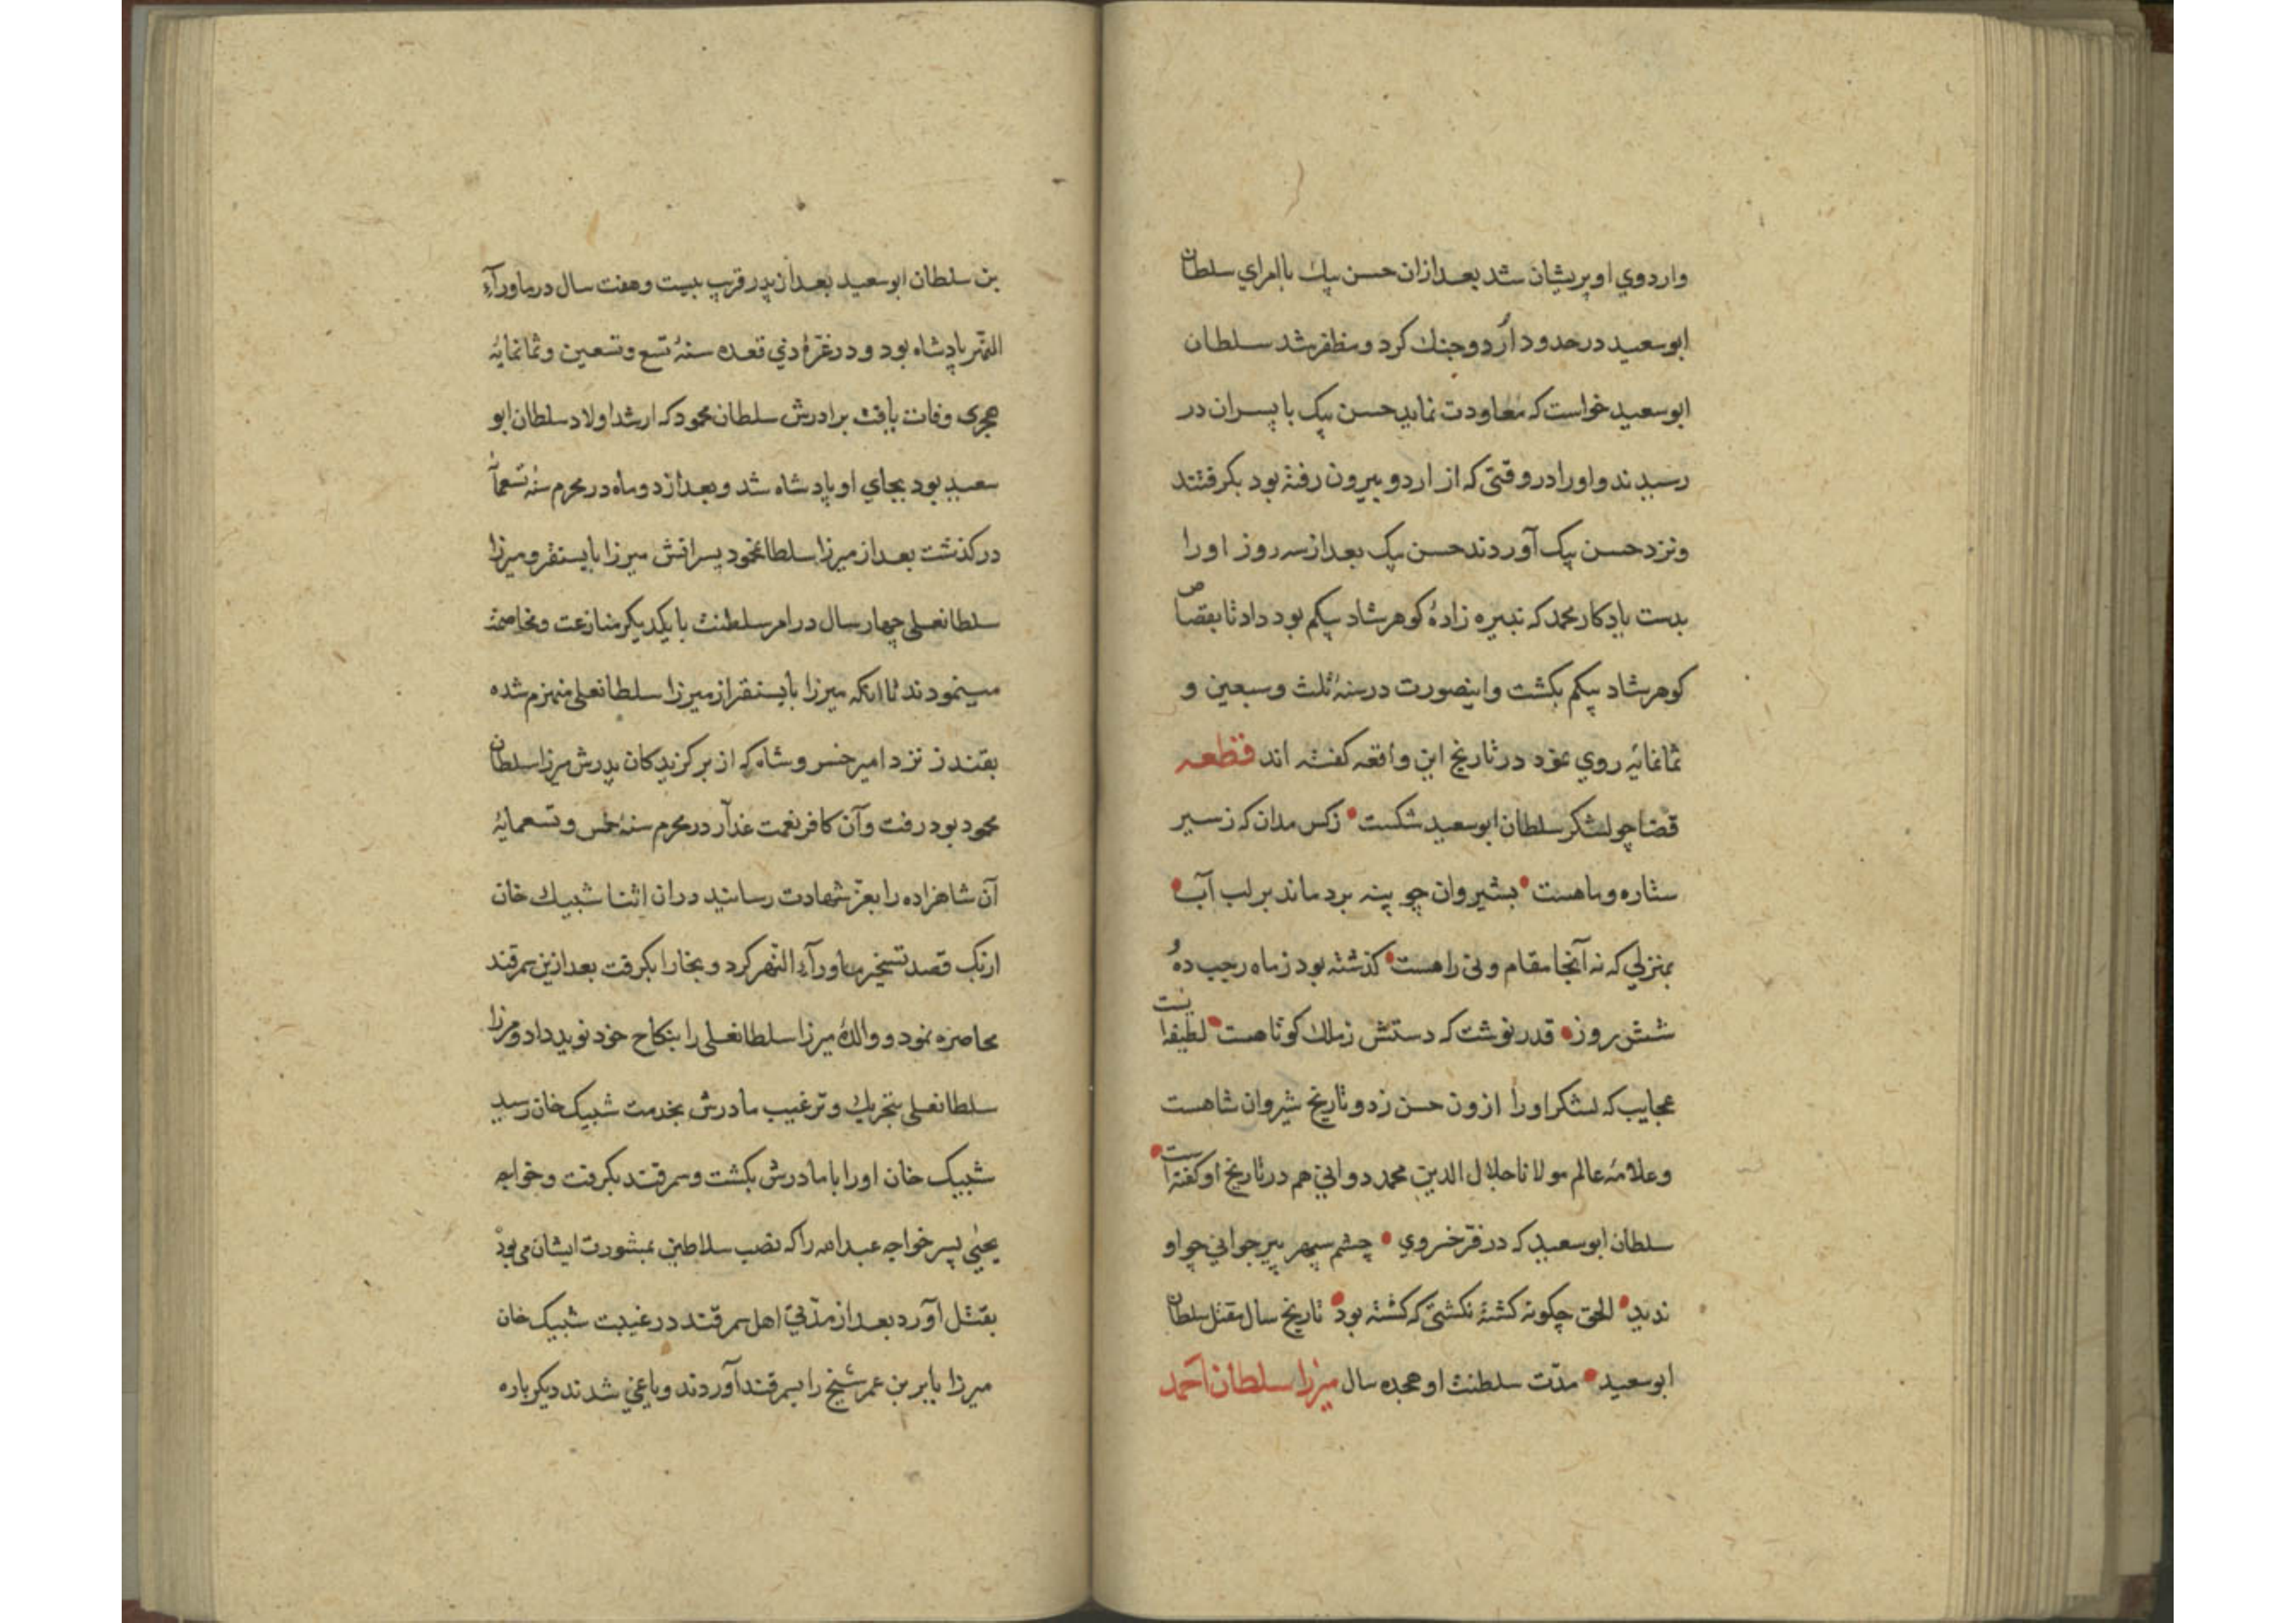 واردوي او پريشان شد بعد ازان حسن بيك با امراي سلطان
ابوسعيد در حدود اُردو جنك كرد و مظفر شد سلطان
ابوسعيد خواست كه معاودت نمايد حسن بيك با پسران در
رسيدند و اورا در وقتى كه از اردو بيرون رفته بود بكرفتند
و نزد حسن بيك آوردند حسن بيك بعد از سه روز اورا
بدست يادكار محمد كه نبيره زادۀ كوهرشاد بيكم بود داد تا بقصاص
كوهرشاد بيكم بكشت و اينصورت در سنۀ ثلث و سبعين و
ثمانمايه روي نمود در تاريخ اين واقعه كفته اند قطعه
قضا چو لشكر سلطان ابوسعيد شكست • زكس مدان كه ز سير
ستاره و ماهست • بشيروان چو بنه برد ماند بر لب آب •
بمنزلي كه نه آنجا مقام و نى راهست • كذشته بود ز ماه رجب ده و
شش روز • قدر نوشت كه دستش ز ملك كوتاهست • لطيفه ايست
عجايب كه لشكر اورا ازون حسن زد و تاريخ شيروان شاهست
و علامۀ عالم مولانا جلال الدين محمد دواني هم در تاريخ او كفته است •
سلطان ابوسعيد كه در فر خسروي • چشم سپهر پير جواني چو او
نديد • الحق چكونه كشته نكشتى كه كشته بود • تاريخ سال مقتل سلطان
ابوسعيد • مدّت سلطنت او هجده سال ميرزا سلطان احمد
بن سلطان ابوسعيد بعد از پدر قريب بيست و هفت سال در ماوراء
النهر پادشاه بود و در غرۀ ذي قعده سنۀ تسع و تسعين و ثمانمايۀ
هجرى وفات يافت برادرش سلطان محمود كه ارشد اولاد سلطان ابو
سعيد بود بجاي او پادشاه شد و بعد از دو ماه در محرم سنه تسعمأ
در كذشت بعد از ميرزا سلطانمحمود پسرانش ميرزا بايسنقر و ميرزا
سلطانعلى چهار سال در امر سلطنت با يكديكر منازعت و مخاصمت
مينمودند تا انكه ميرزا بايسنقر از ميرزا سلطانعلى منهزم شده
بقندز نزد امير خسرو شاه كه از بركزيدكان پدرش ميرزا سلطان
محمود بود رفت و آن كافر نعمت غدّار در محرم سنۀ خمس و تسعمايۀ
آن شاهزاده را بعز شهادت رسانيد دران اثنا شبيك خان
ازبك قصد تسخير ماوراء النهر كرد و بخارا بكرفت بعد ازين سمرقند
محاصره نمود و والدۀ ميرزا سلطانعلى را بنكاح خود نويد داد و ميرزا
سلطانعلى بتحريك و ترغيب مادرش بخدمت شبيك خان رسيد
شبيك خان اورا با مادرش بكشت و سمرقند بكرفت و خواجه
يحيٰي پسر خواجه عبدالله را كه نصب سلاطين بمشورت ايشان مى بود
بقتل آورد بعد از مدّتي اهل سمرقند در غيبت شبيك خان
ميرزا بابر بن عمر شيخ را بسمرقند آوردند و ياغي شدند ديكر باره